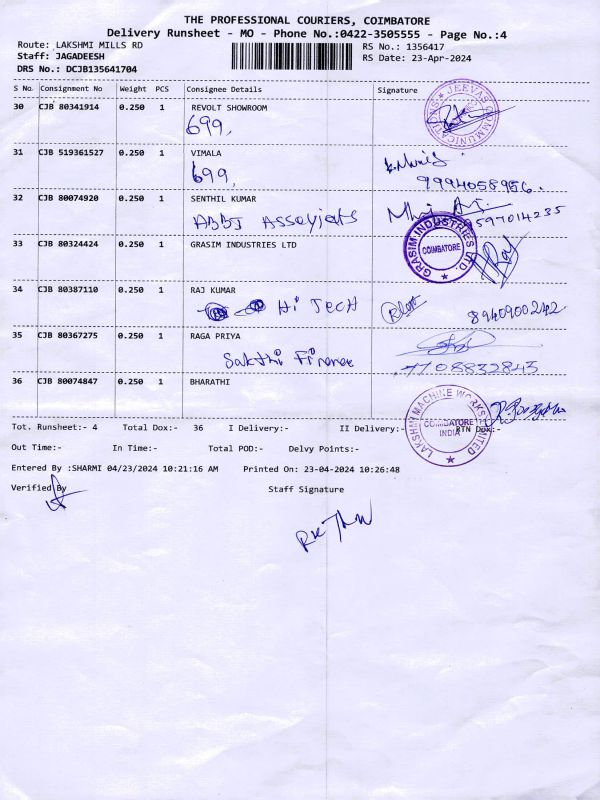 THE PROFESSIONAL COURIERS, COIMBATORE
Delivery Runsheet - MO - Phone No.:0422-3505555 - Page No.:4
Route: LAKSHMI MILLS RD RS No.: 1356417
Staff: JAGADEESH RS Date: 23-Apr-2024
DRS No.: DCJB135641704
S No. Consignment No Weight PCS Consignee Details Signature
30 CJB 80341914 0.250 1 REVOLT SHOWROOM
699,
JEEVAS COMMUNICATIONS
31 CJB 519361527 0.250 1 VIMALA
699,
9994058956.
32 CJB 80074920 0.250 1 SENTHIL KUMAR
ABBJ Assoyiats 9597014235
33 CJB 80324424 0.250 1 GRASIM INDUSTRIES LTD
GRASIM INDUSTRIES LTD.
COIMBATORE
34 CJB 80387110 0.250 1 RAJ KUMAR
Hi Tech 8940900242
35 CJB 80367275 0.250 1 RAGA PRIYA
Sakthi Finance 7708832843
36 CJB 80074847 0.250 1 BHARATHI
LAKSHMI MACHINE WORKS LIMITED
COIMBATORE
INDIA
Tot. Runsheet:- 4 Total Dox:- 36 I Delivery:- II Delivery:- RTN Dox:-
Out Time:- In Time:- Total POD:- Delvy Points:-
Entered By :SHARMI 04/23/2024 10:21:16 AM Printed On: 23-04-2024 10:26:48
Verified By Staff Signature